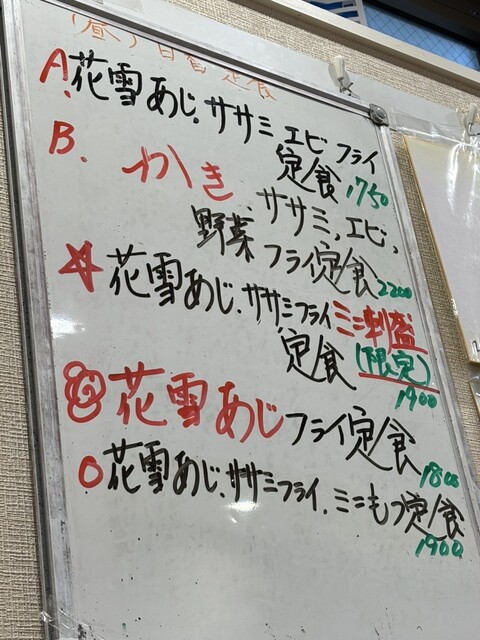 (昼) 日替定食
A. 花雪あじ、ササミ エビ フライ
定食 1750
B. かき ササミ、エビ、
野菜 フライ定食 2200
☆ 花雪あじ、ササミフライ ミニ刺盛
定食 (限定)
1900
◎ 花雪あじフライ定食
1800
○ 花雪あじ、ササミフライ、ミニもつ定食
1900